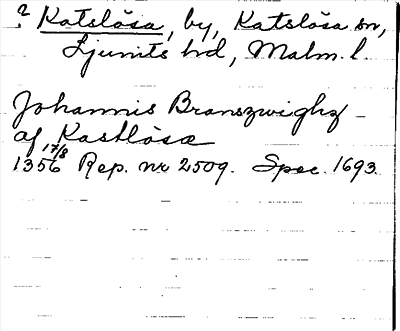 ? Katslösa, by, Katslösa sn,
Ljunits hd, Malm. l.
Johannis Branszwighz
af Kastlösæ
1356 17/8 Rep. nr 2509. Spec. 1693.